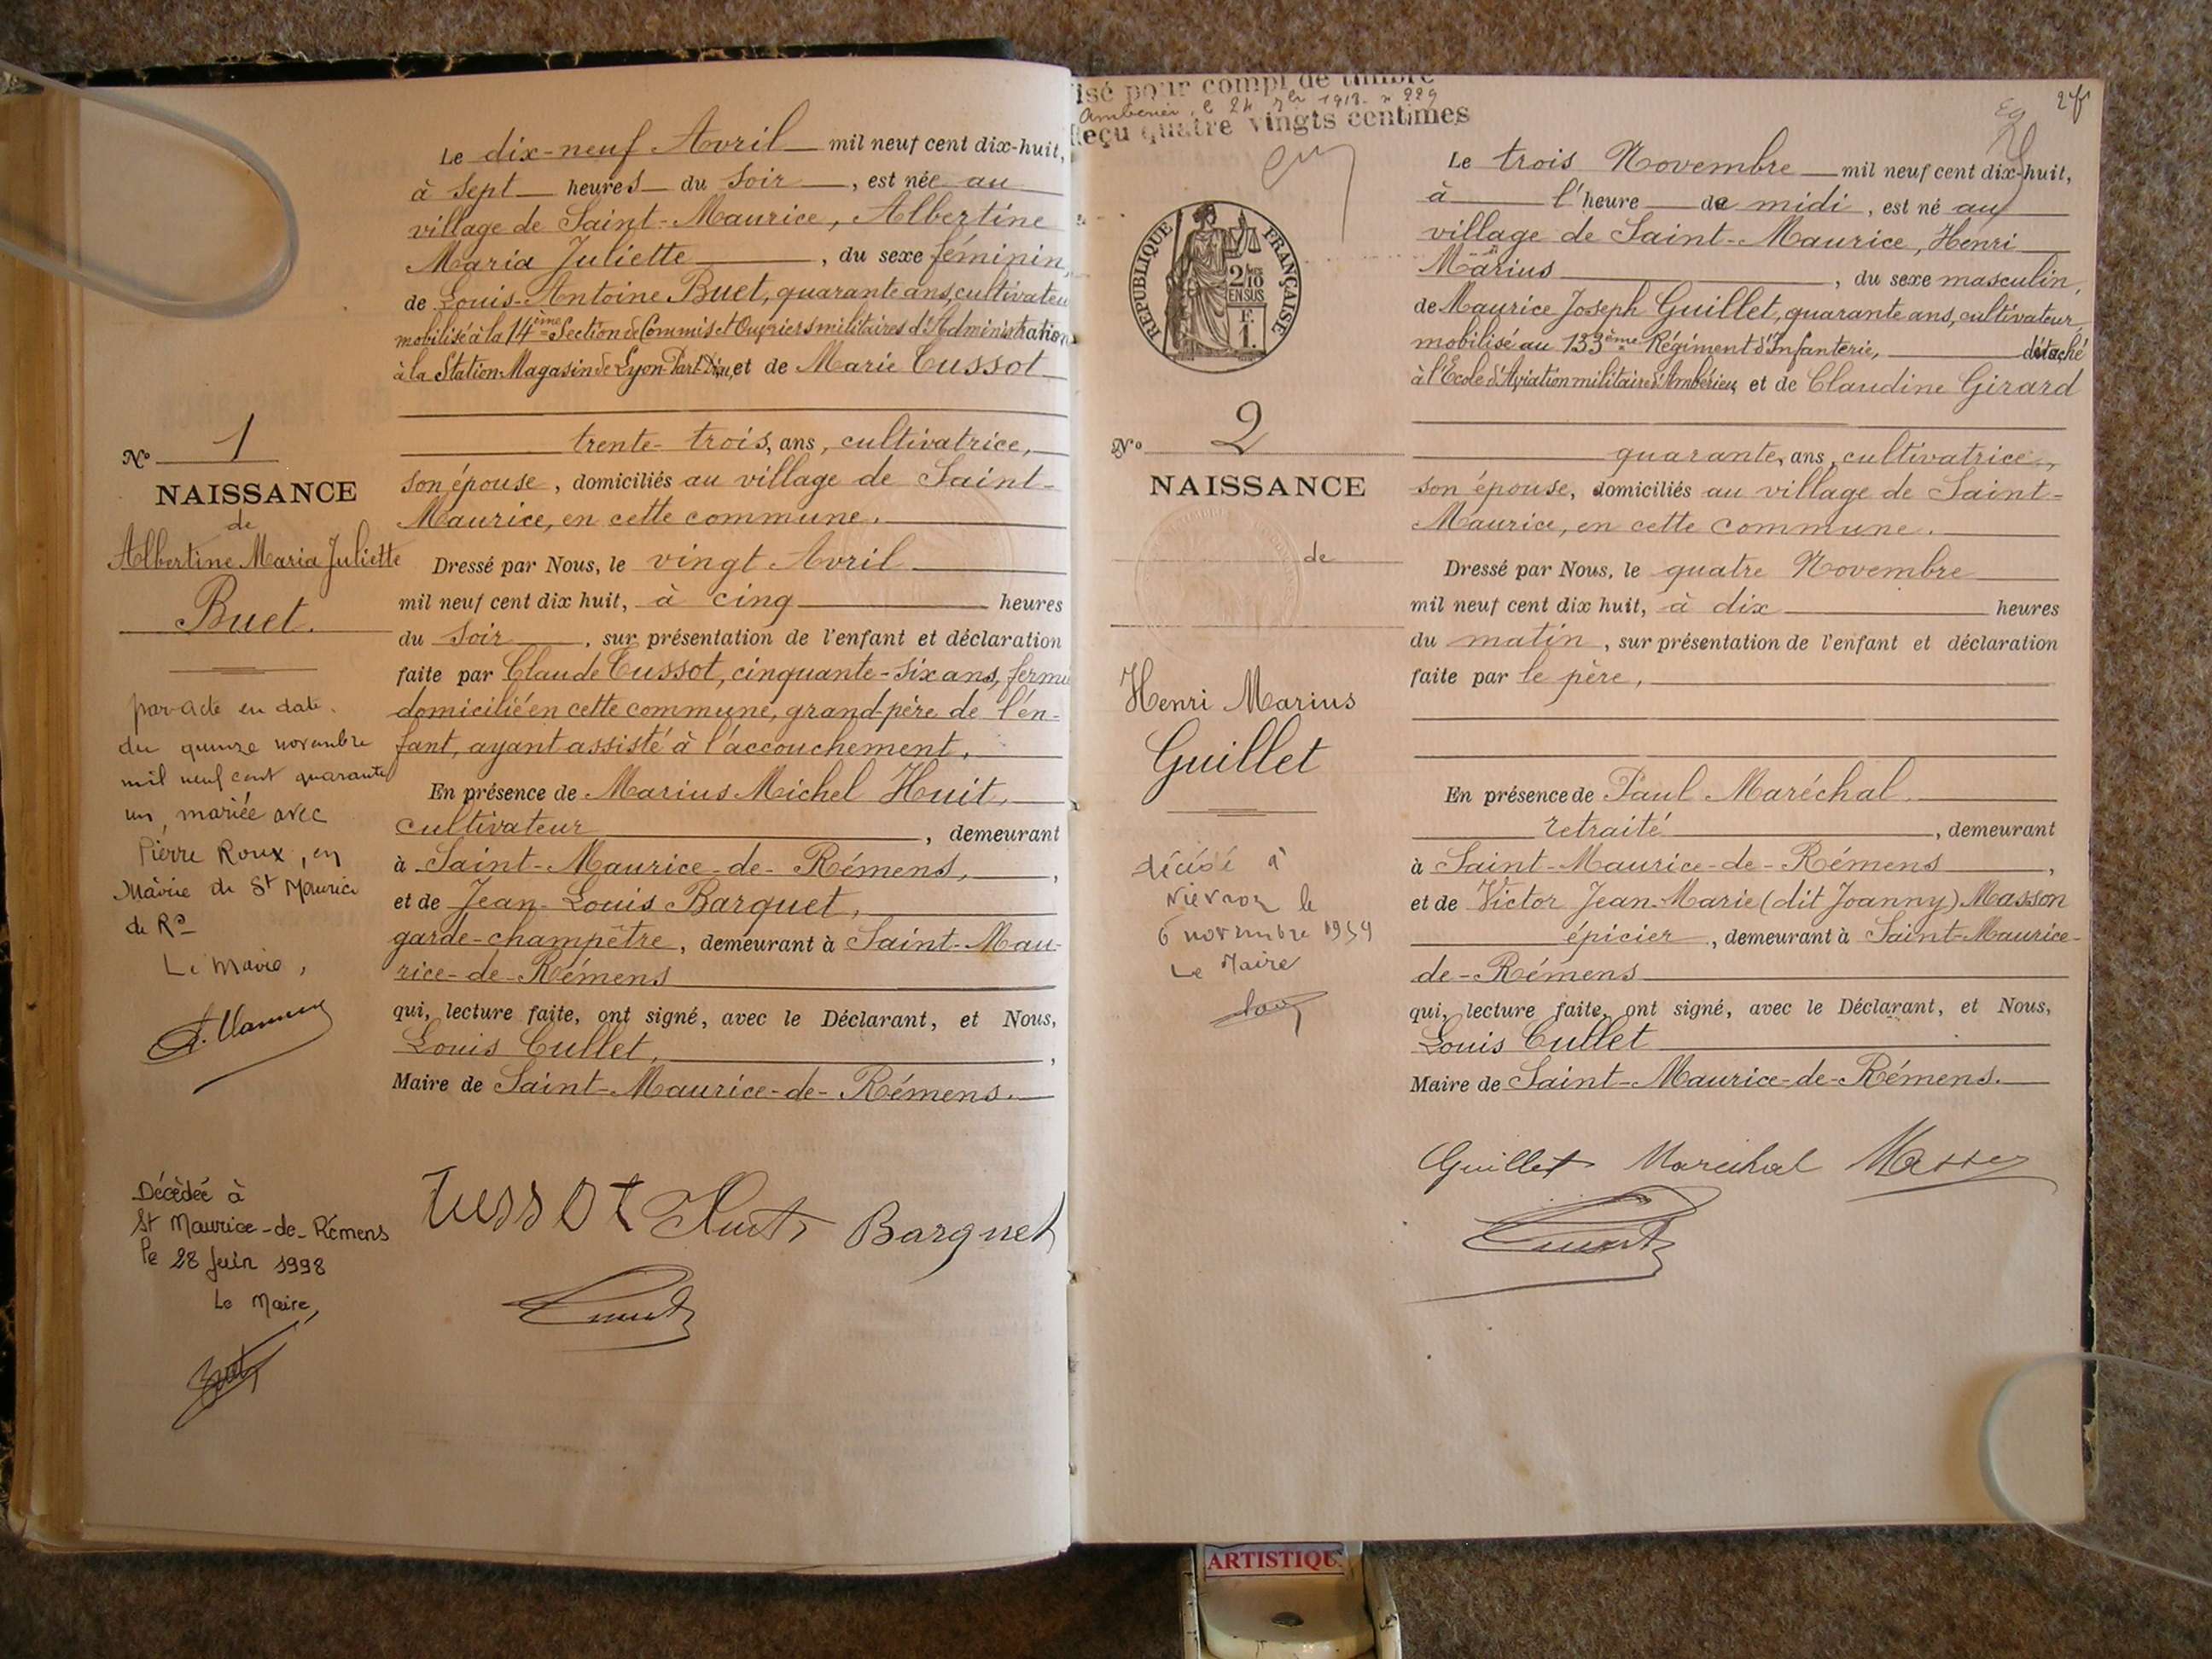 Le dix-neuf Avril mil neuf cent dix-huit,
à sept heures du soir, est née au
village de Saint-Maurice, Albertine
Maria Juliette, du sexe féminin,
de Louis-Antoine Buet, quarante ans, cultivateu
mobilisé à la 14ème Section de Commis et Ouvriers militaires d'Administration
à la Station-Magasin de Lyon-Part-Dieu, et de Marie Cussot
trente-trois, ans, cultivatrice,
son épouse, domiciliés au village de Saint-
Maurice, en cette commune.
Dressé par Nous, le vingt Avril
mil neuf cent dix huit, à cinq heures
du soir, sur présentation de l'enfant et déclaration
faite par Claude Cussot, cinquante-six ans, fermi
domicilié en cette commune, grand-père de l'en-
fant, ayant assisté à l'accouchement,
En présence de Marius Michel Huit,
cultivateur, demeurant
à Saint-Maurice-de-Rémens,
et de Jean-Louis Barquet,
garde-champêtre, demeurant à Saint-Mau-
rice-de-Rémens
qui, lecture faite, ont signé, avec le Déclarant, et Nous,
Louis Cullet,
Maire de Saint-Maurice-de-Rémens.
Cussot Huit Barquet
No 1
NAISSANCE
de
Albertine Maria Juliette
Buet.
par acte en date
du quinze novembre
mil neuf cent quarante
un, mariée avec
Pierre Roux, en
Mairie de St Maurice
de Rs
Le Maire,
Décédée à
St Maurice-de-Rémens
le 28 Juin 1998
Le Maire,
isé pour compl de timbre
Ambérieu, le 24 1918 n 229
eçu quatre vingts centimes
RÉPUBLIQUE FRANÇAISE
2/10
EN SUS
F.
1.
No 2
NAISSANCE
de
Henri Marius
Guillet
décédé à
le
6 novembre 1959
Le Maire
Le trois Novembre mil neuf cent dix-huit,
à l'heure de midi, est né au
village de Saint-Maurice, Henri
Marius, du sexe masculin,
de Maurice Joseph Guillet, quarante ans, cultivateur
mobilisé au 133ème Régiment d'Infanterie, détaché
à l'École d'Aviation militaire d'Ambérieu, et de Claudine Girard
quarante, ans, cultivatrice,
son épouse, domiciliés au village de Saint-
Maurice, en cette commune.
Dressé par Nous, le quatre Novembre
mil neuf cent dix huit, à dix heures
du matin, sur présentation de l'enfant et déclaration
faite par le père,
En présence de Paul Maréchal
retraité, demeurant
à Saint-Maurice-de-Rémens,
et de Victor Jean-Marie (dit Joanny) Masson
épicier, demeurant à Saint-Maurice-
de-Rémens
qui, lecture faite, ont signé, avec le Déclarant, et Nous,
Louis Cullet
Maire de Saint-Maurice-de-Rémens.
Guillet Marechal Masson
ARTISTIQU